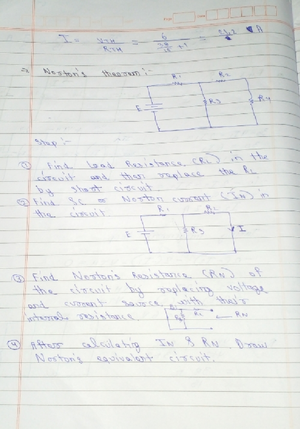 I = VTH / RTH =
⇒ Norton's theorem :-
R1
E
R3
R4
Step :-
① Find Load Resistance (RL) in the
circuit and then replace the RL
by short circuit
② Find SC or Norton current (IN) in
the circuit
R1
E
R3
I
③ Find Norton's Resistance (RN) of
the circuit by replacing voltage
and current source with their
internal resistance
RN
④ After calculating IN & RN Draw
Norton's equivalent circuit.